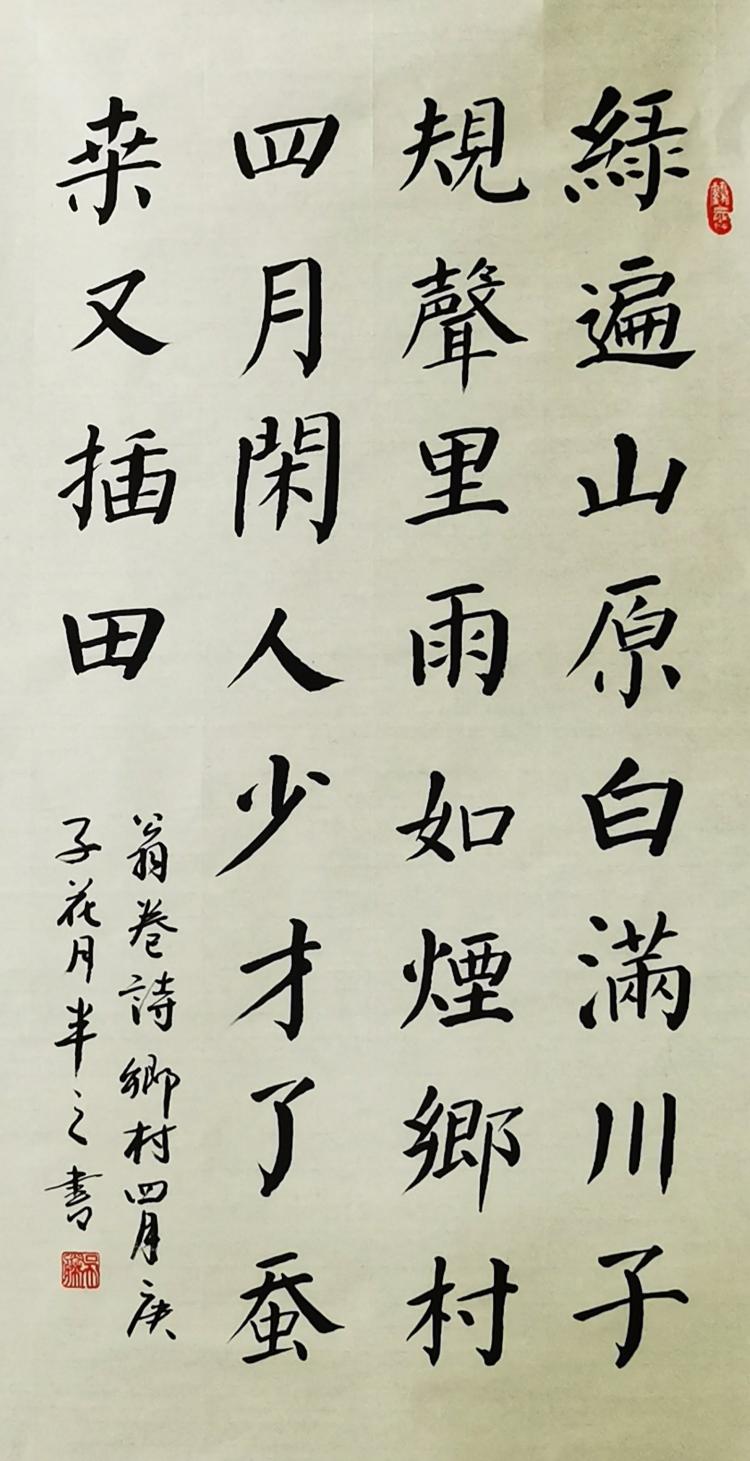 綠遍山原白滿川子
規聲里雨如煙鄉村
四月閑人少才了蚕
桒又插田
翁卷詩鄉村四月庚
子花月半之書